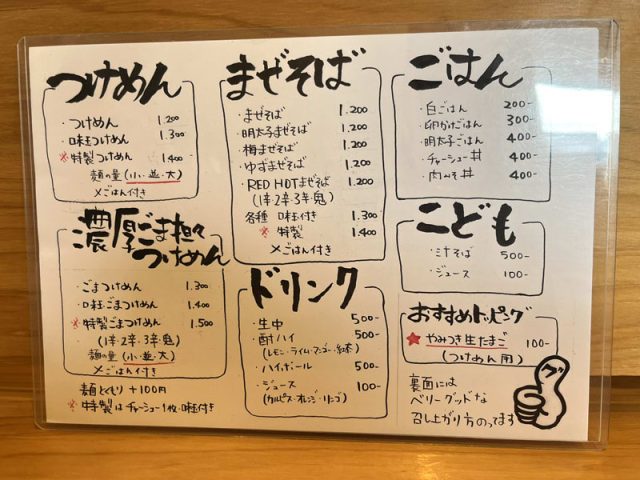 つけめん
・つけめん 1.200
・味玉つけめん 1.300
※特製つけめん 1.400
麺の量(小・並・大)
×ごはん付き
濃厚ごま担々つけめん
・ごまつけめん 1.300
・味玉ごまつけめん 1.400
※特製ごまつけめん 1.500
(1辛・2辛・3辛・鬼)
麺の量(小・並・大)
×ごはん付き
麺大もり +100円
※特製はチャーシュー1枚・味玉付き
まぜそば
・まぜそば 1.200
・明太子まぜそば 1.200
・梅まぜそば 1.200
・ゆずまぜそば 1.200
・RED HOTまぜそば 1.200
(1辛・2辛・3辛・鬼)
各種 味玉付き 1.300
※特製 1.400
×ごはん付き
ドリンク
・生中 500-
・酎ハイ 500-
(レモン・ライム・マンゴー・紅茶)
・ハイボール 500-
・ジュース 100-
(カルピス・オレンジ・リンゴ)
ごはん
・白ごはん 200-
・卵かけごはん 300-
・明太子ごはん 400-
・チャーシュー丼 400-
・肉みそ丼 400-
こども
・ミニそば 500-
・ジュース 100-
おすすめトッピング
★やみつき生たまご 100-
(つけめん用)
裏面には
ベリーグッドな
召し上がり方のってます
グ